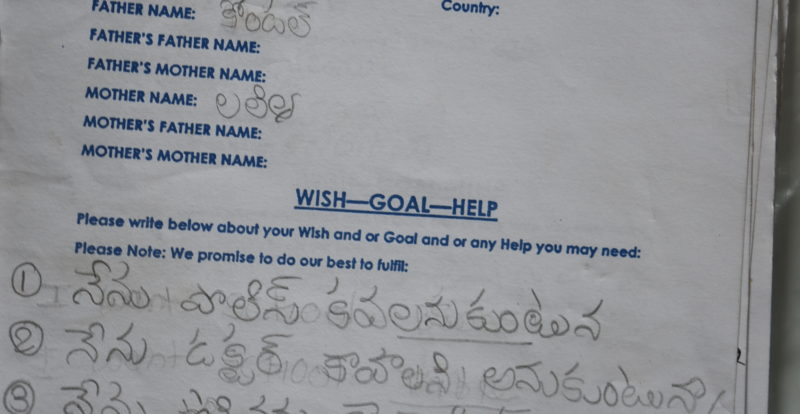 FATHER NAME: కొండల్
Country:
FATHER'S FATHER NAME:
FATHER'S MOTHER NAME:
MOTHER NAME:
MOTHER'S FATHER NAME:
MOTHER'S MOTHER NAME:
WISH—GOAL—HELP
Please write below about your Wish and or Goal and or any Help you may need:
Please Note: We promise to do our best to fulfil:
① నేను పొలీస్ కవలనుకుంటున
② నేను డక్టర్ కావాలని అనుకుంటున్నా
③ నేను